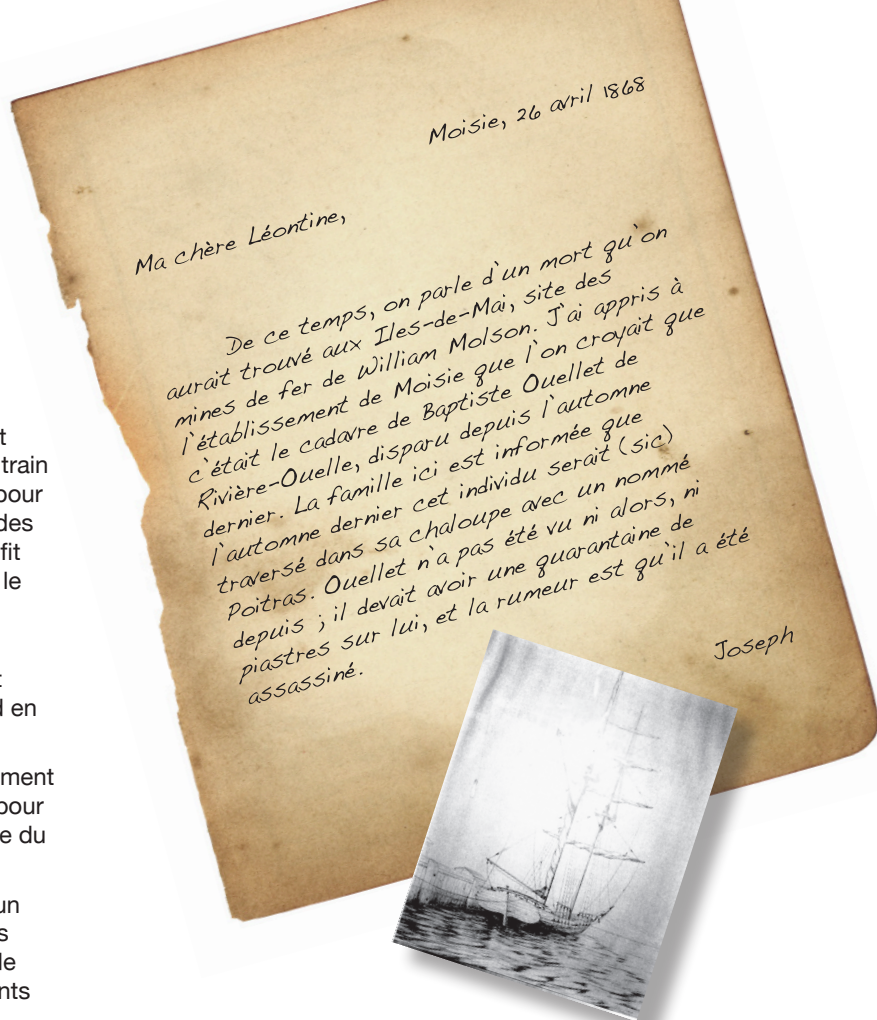 Moisie, 26 avril 1868
Ma chère Léontine,
De ce temps, on parle d'un mort qu'on
aurait trouvé aux Iles-de-Mai, site des
mines de fer de William Molson. J'ai appris à
l'établissement de Moisie que l'on croyait que
c'était le cadavre de Baptiste Ouellet de
Rivière-Ouelle, disparu depuis l'automne
dernier. La famille ici est informée que
l'automne dernier cet individu serait (sic)
traversé dans sa chaloupe avec un nommé
Poitras. Ouellet n'a pas été vu ni alors, ni
depuis ; il devait avoir une quarantaine de
piastres sur lui, et la rumeur est qu'il a été
assassiné.
Joseph
t
train
pour
des
fit
le
t
d en
ment
pour
e du
un
s
le
nts